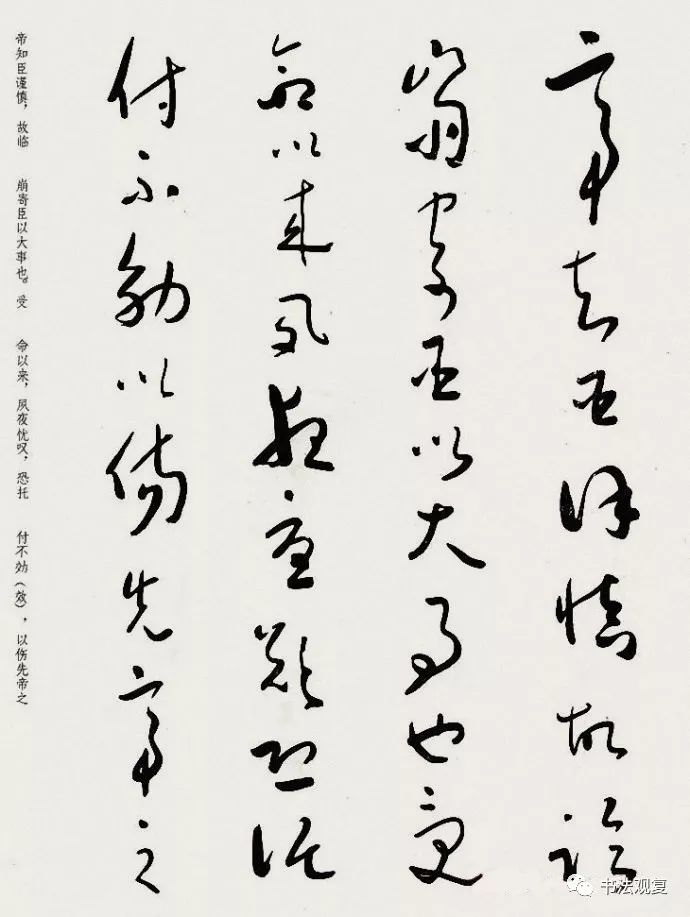 帝知臣謹慎故臨
崩寄臣以大事也受
命以來夙夜憂歎恐託
付不効以傷先帝之
帝知臣谨慎，故临 崩寄臣以大事也。受 命以来，夙夜忧叹，恐托 付不効（效），以伤先帝之
书法观复